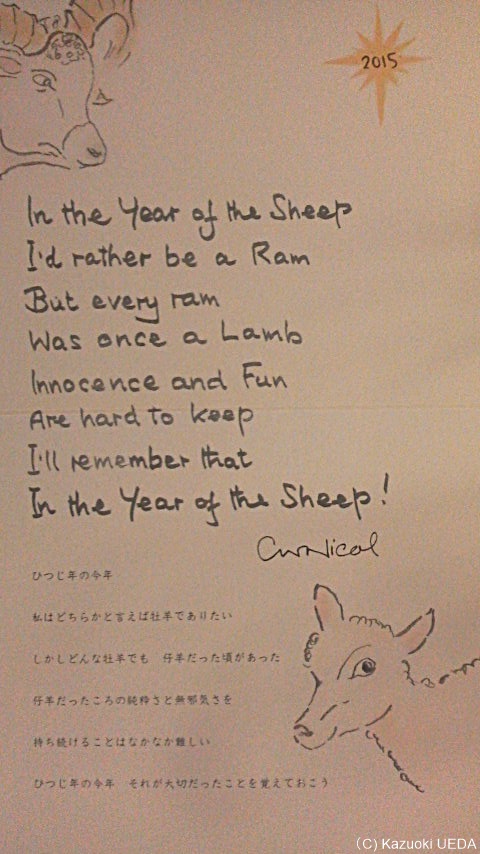 2015
In the Year of the Sheep
I'd rather be a Ram
But every ram
Was once a Lamb
Innocence and Fun
Are hard to keep
I'll remember that
In the Year of the Sheep!
CW Nicol
ひつじ年の今年
私はどちらかと言えば牡羊でありたい
しかしどんな牡羊でも　仔羊だった頃があった
仔羊だったころの純粋さと無邪気さを
持ち続けることはなかなか難しい
ひつじ年の今年　それが大切だったことを覚えておこう
(C) Kazuoki UEDA